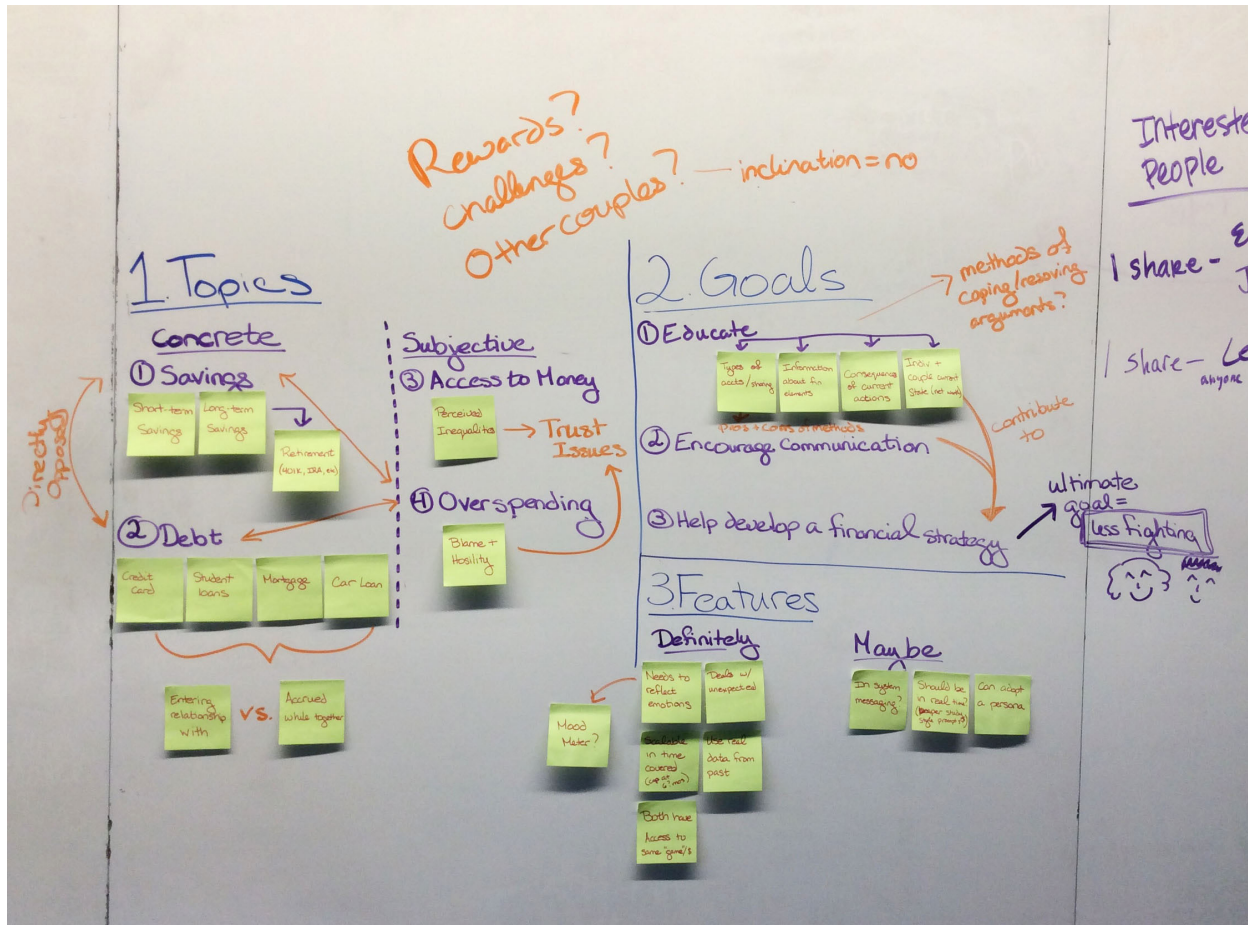 Rewards?
challenges?
Other couples? — inclination = no
Intereste
People
1 share -
1 share -
anyone
1. Topics
Concrete
① Savings
Short-term
Savings
Long-term
Savings
Retirement
(401K, IRA, etc)
Directly
Opposed
② Debt
Credit
Card
Student
loans
Mortgage
Car Loan
Entering
relationship
with
vs.
Accrued
while together
Subjective
③ Access to Money
Perceived
Inequalities
Trust
Issues
④ Overspending
Blame +
Hosility
2. Goals
methods of
coping/resolving
arguments?
① Educate
Types of
accts/sharing
Information
about fin
elements
Consequences
of current
actions
Indiv +
couple current
state (net worth)
pros + cons of methods
② Encourage Communication
contribute
to
③ Help develop a financial strategy
ultimate
goal =
less fighting
3. Features
Definitely
Needs to
reflect
emotions
Deals w/
unexpected
Mood
Meter?
Scalable
in time
covered
Use real
data from
past
Both have
Access to
same "game"/$
Maybe
In system
messaging?
Should be
in real time?
Can adopt
a persona